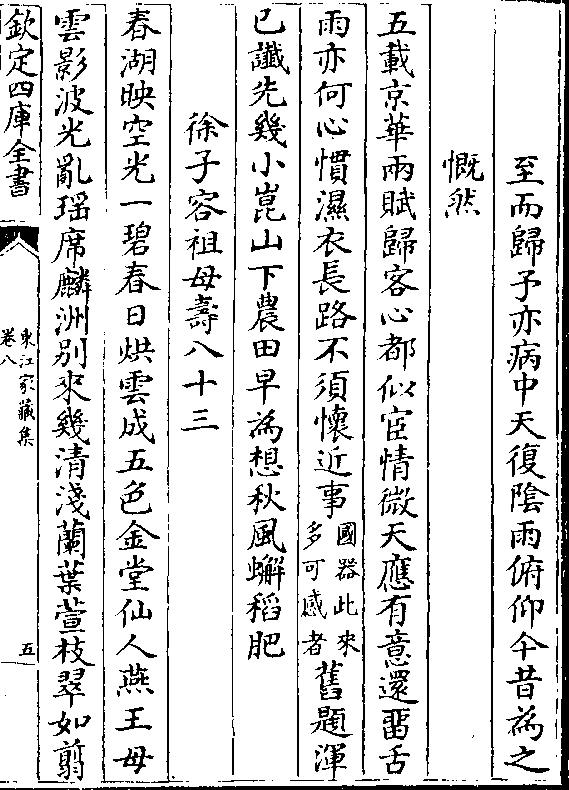 至而歸予亦病中天復陰雨俯仰今昔為之
慨然
五載京華兩賦歸客心都似宦情微天應有意還留舌
雨亦何心慣濕衣長路不須懷近事國器此來多可感者舊題渾
已讖先幾小崑山下農田早為想秋風蠏稻肥
徐子容祖母壽八十三
春湖映空光一碧春日烘雲成五色金堂仙人燕王母
雲影波光亂瑶席麟洲別來幾清淺蘭葉萱枝翠如翦
欽定四庫全書
東江家藏集
卷八
五